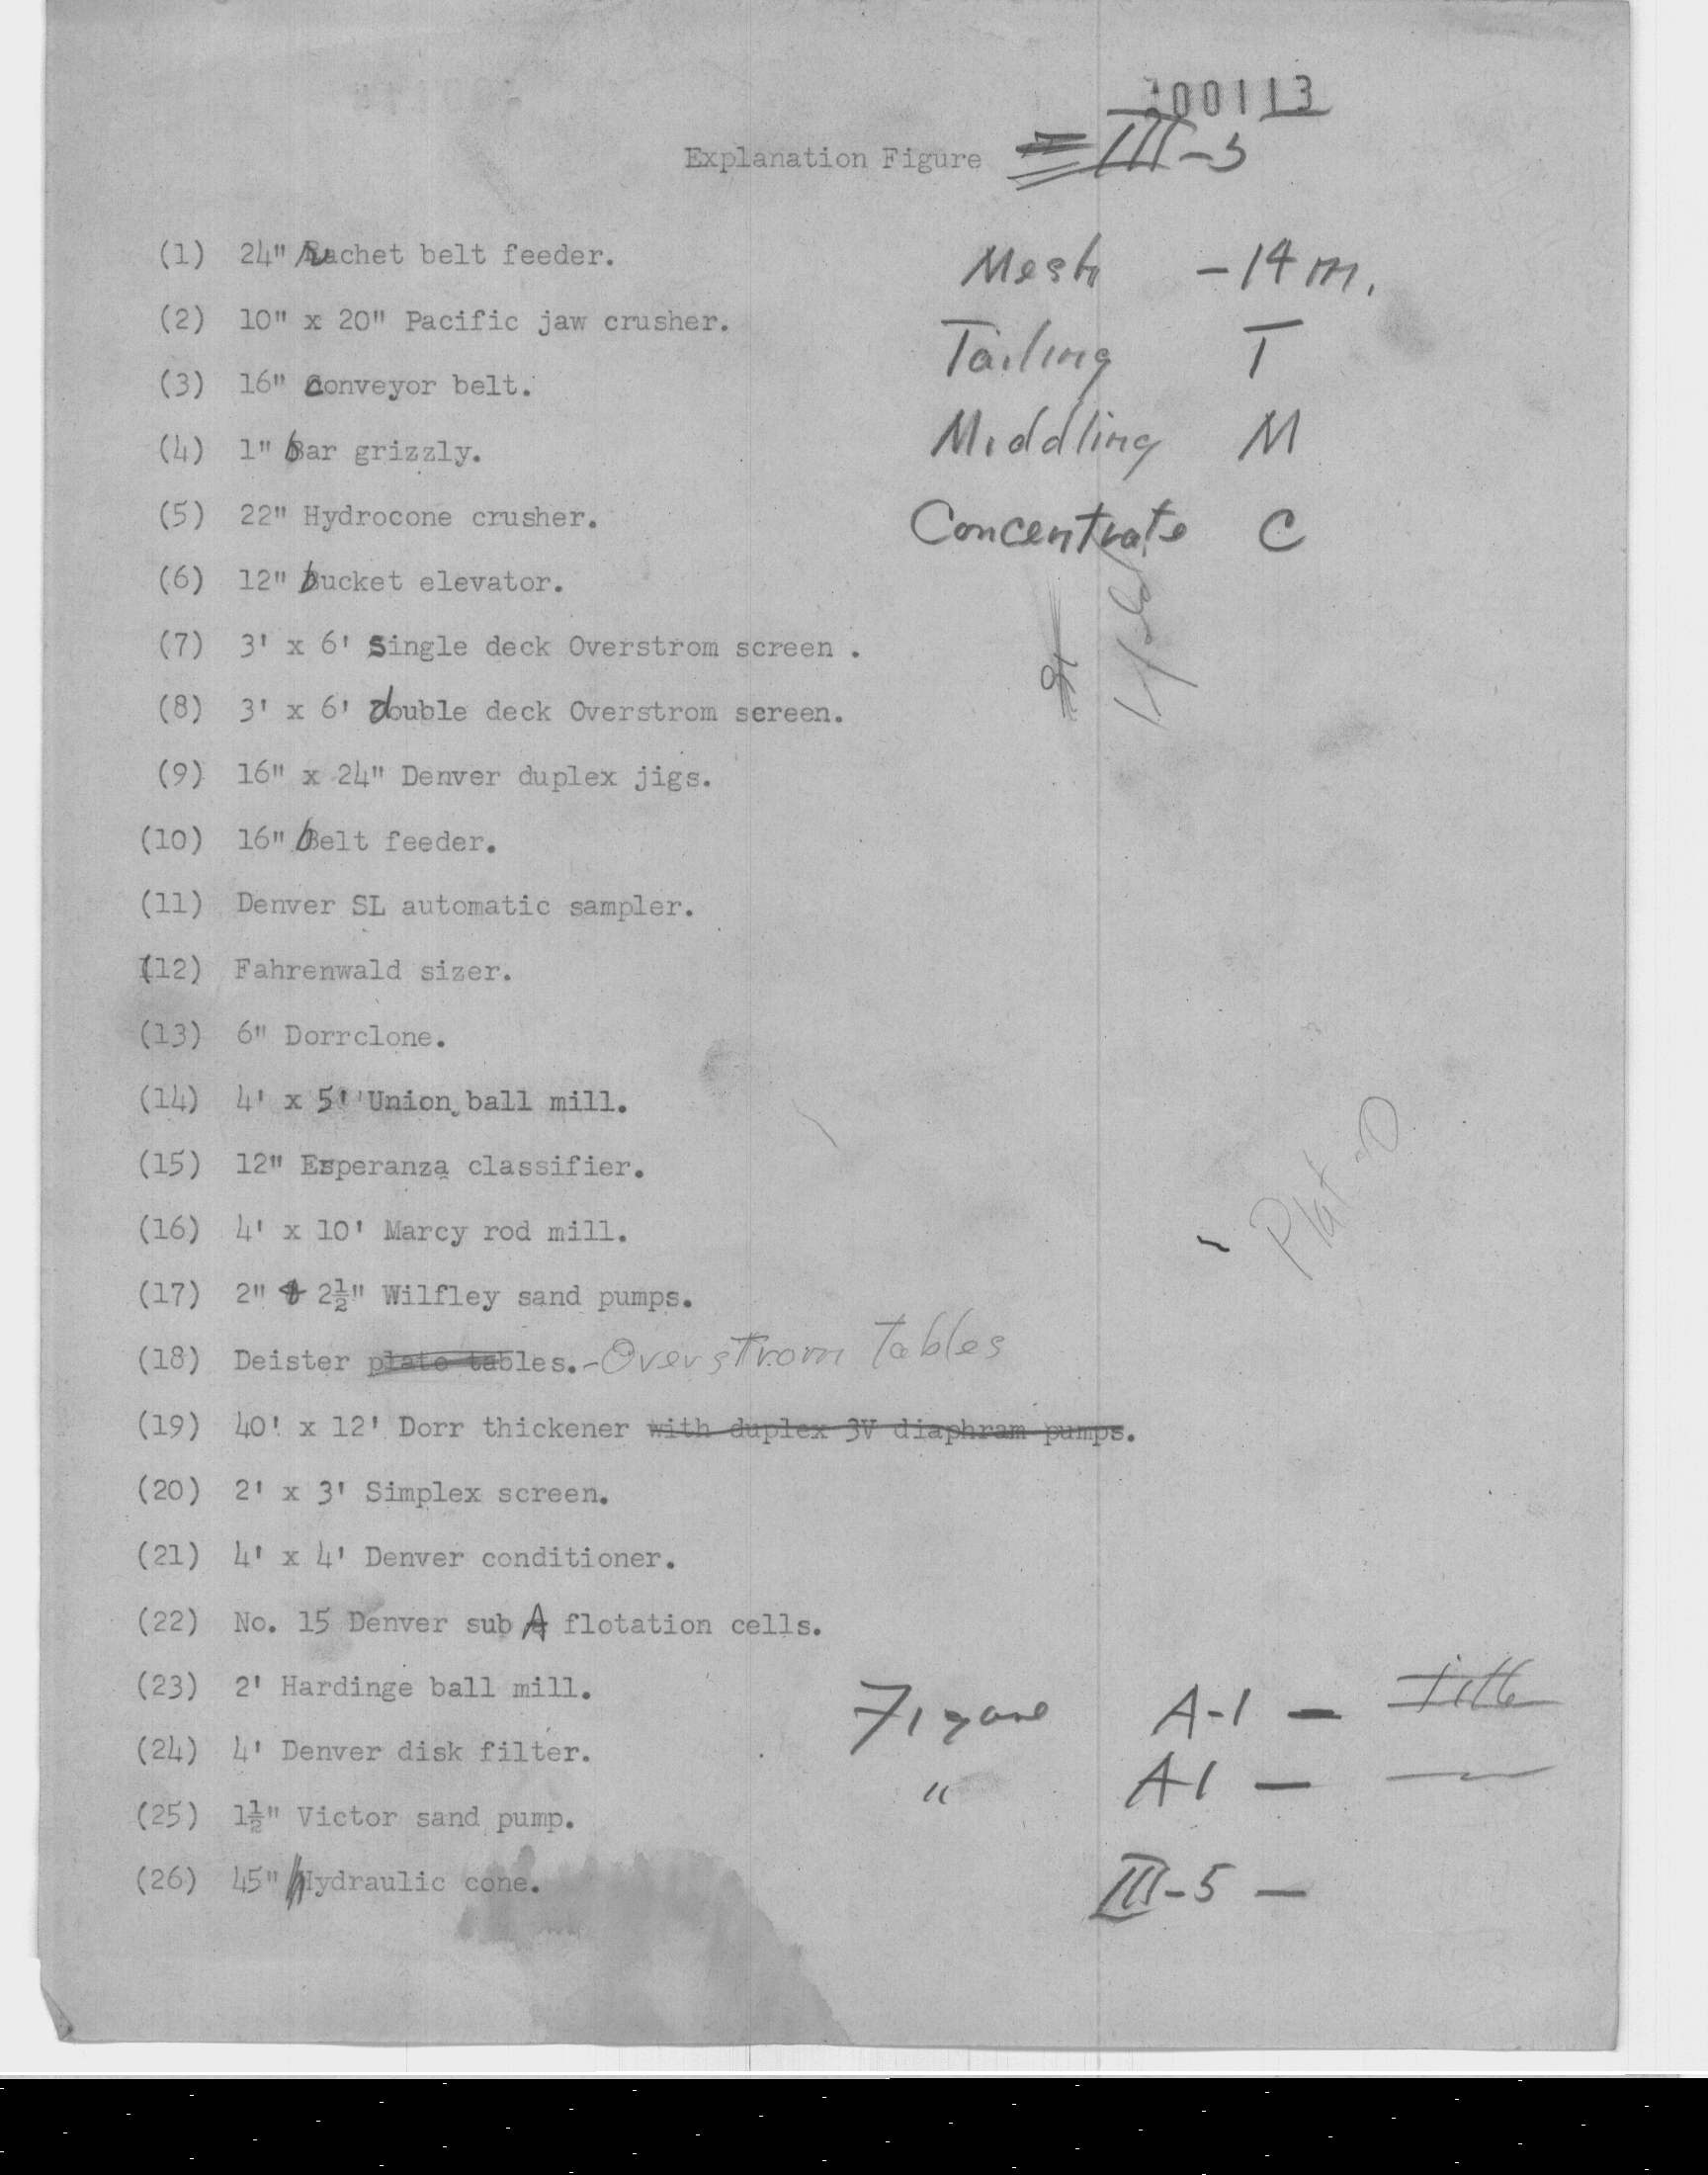 00113
Explanation Figure III-5
(1) 24" rachet belt feeder.
Mesh -14 m.
(2) 10" x 20" Pacific jaw crusher.
Tailing T
(3) 16" conveyor belt.
(4) 1" bar grizzly.
Middling M
(5) 22" Hydrocone crusher.
Concentrate C
(6) 12" bucket elevator.
(7) 3' x 6' single deck Overstrom screen .
(8) 3' x 6' double deck Overstrom screen.
(9) 16" x 24" Denver duplex jigs.
(10) 16" belt feeder.
(11) Denver SL automatic sampler.
(12) Fahrenwald sizer.
(13) 6" Dorrclone.
(14) 4' x 5' Union ball mill.
(15) 12" Esperanza classifier.
(16) 4' x 10' Marcy rod mill.
Plat-O
(17) 2" & 2½" Wilfley sand pumps.
(18) Deister plato tables.-Overstrom tables
(19) 40' x 12' Dorr thickener with duplex 3V diaphram pumps.
(20) 2' x 3' Simplex screen.
(21) 4' x 4' Denver conditioner.
(22) No. 15 Denver sub A flotation cells.
(23) 2' Hardinge ball mill.
Figure A-1 - Title
(24) 4' Denver disk filter.
" A-1 -
(25) 1½" Victor sand pump.
(26) 45" hydraulic cone.
III-5 -